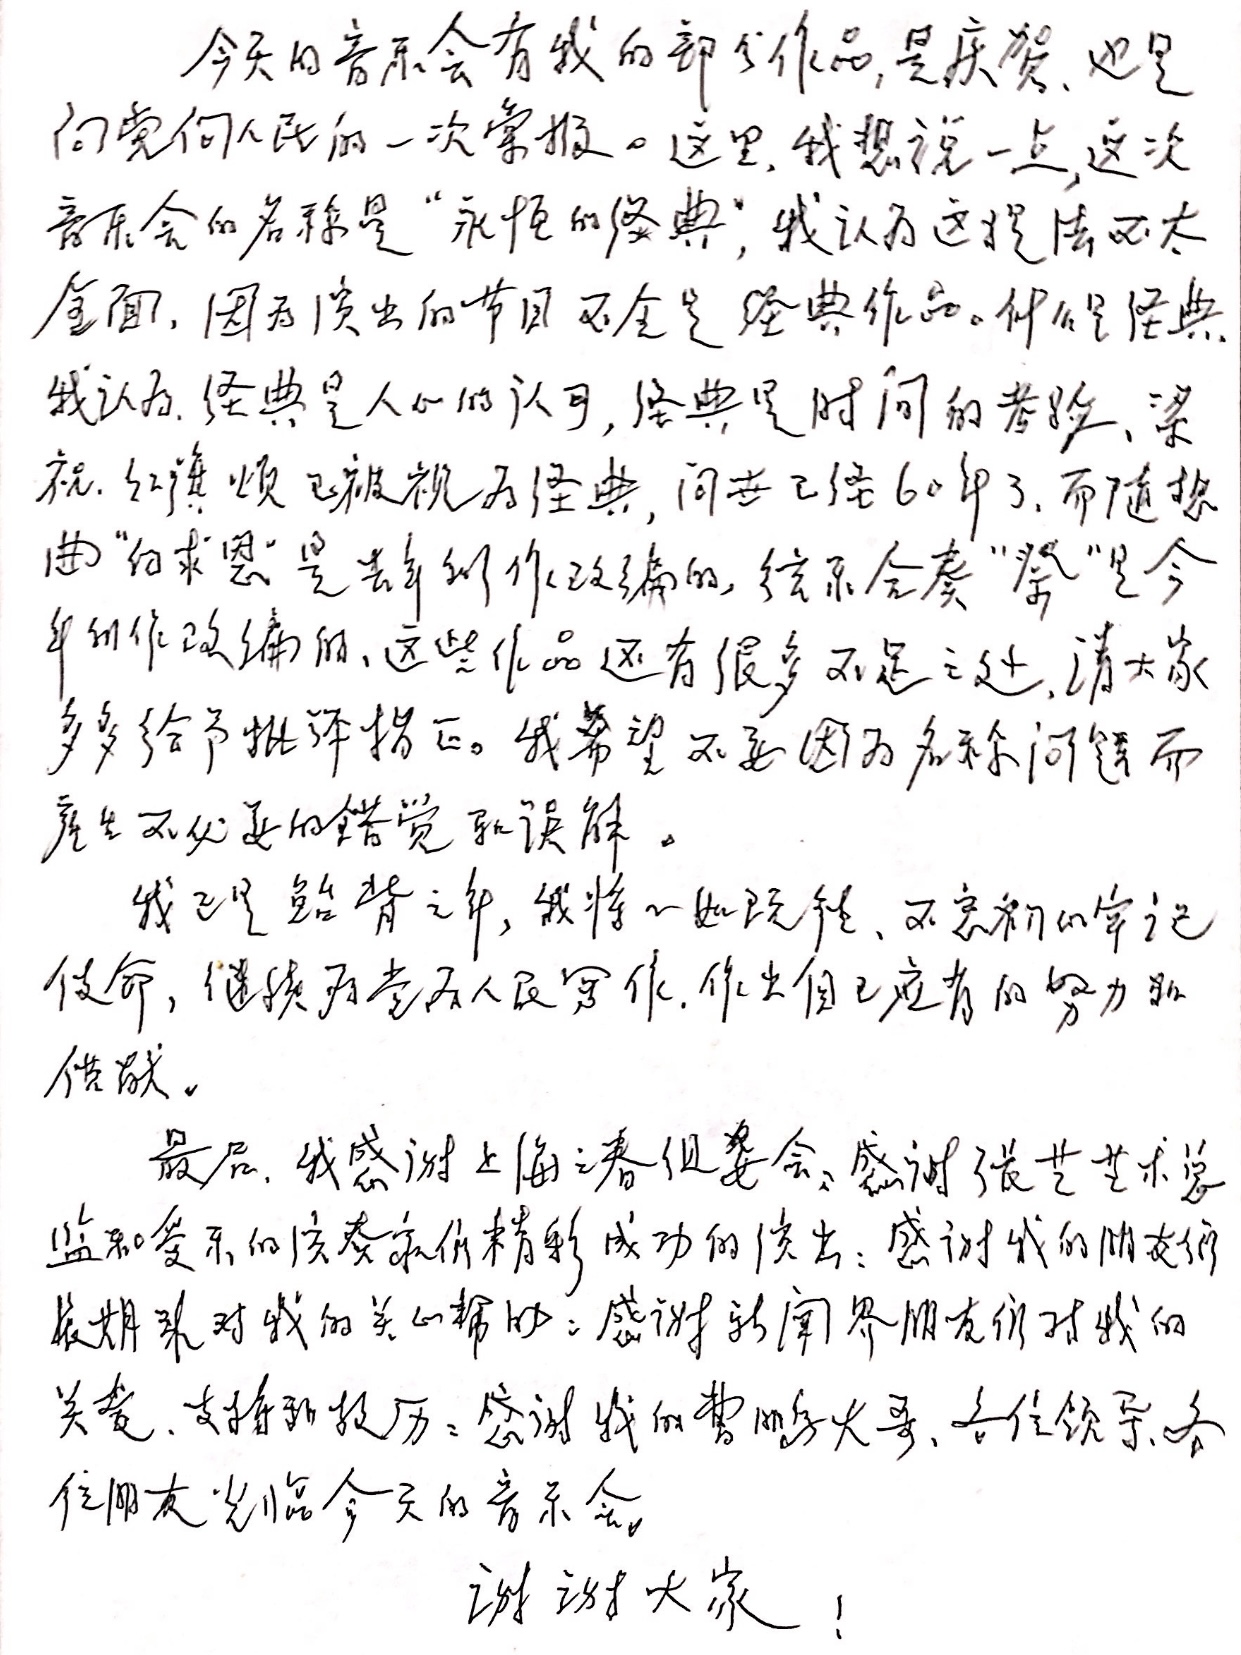 今天的音乐会有我的部分作品,是庆贺、也是
向党向人民的一次汇报。这里,我想说一点,这次
音乐会的名称是“永恒的经典”,我认为这提法不太
全面,因为演出的节目不全是经典作品。什么是经典,
我认为,经典是人心的认可,经典是时间的考验、梁
祝、红旗颂已被视为经典,问世已经60年了,而随想
曲“白求恩”是去年创作改编的,弦乐合奏“祭”是今
年创作改编的、这些作品还有很多不足之处,请大家
多多给予批评指正。我希望不要因为名称问题而
产生不必要的错觉和误解。
我已是鲐背之年,我将一如既往、不忘初心牢记
使命,继续为党为人民写作,作出自己应有的努力和
供献。
最后,我感谢上海之春组委会;感谢张艺艺术总
监和爱乐的演奏家们精彩成功的演出;感谢我的朋友们
长期来对我的关心帮助;感谢新闻界朋友们对我的
关爱、支持和鼓历;感谢我的曹鹏大哥、各位领导、各
位朋友光临今天的音乐会。
谢谢大家!